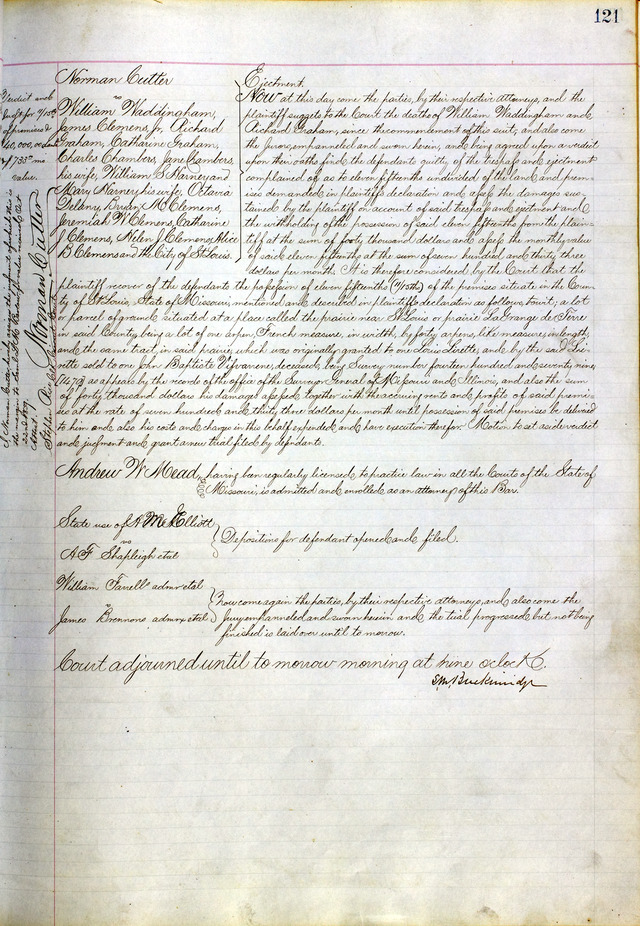 121
Norman Cutter
vs
William Waddingham,
James Clemens, Jr, Richard
Graham, Catharine Graham,
Charles Chambers, Jane Chambers,
his wife, William S Harney and
Mary Harney his wife, Octavia
Delany, Bryan M Clemens,
Jeremiah W Clemens, Catharine
J Clemens, Helen J Clemens, Alice
B Clemens and the City of St Louis.
Ejectment.
Now at this day come the parties, by their respective attorneys, and the
plaintiff suggests to the Court the death of William Waddingham and
Richard Graham, since the commencement of this suit, and also come
the jurors, empanneled and sworn herein, and being agreed upon a verdict
upon their oaths find the defendants guilty of the trespass and ejectment
complained of, as to eleven fifteenths undivided of the land and prem-
ises demanded in plaintiffs declaration and assess the damages sus-
tained by the plaintiff on account of said trespass and ejectment and
the withholding of the possession of said eleven fifteenths from the plain-
tiff at the sum of forty thousand dollars and assess the monthly value
of said eleven fifteenths at the sum of seven hundred and thirty three
dollars per month. It is therefore considered by the Court that the
plaintiff recover of the defendants the possession of eleven fifteenths (11/15ths) of the premises situate in the Coun-
ty of St Louis, State of Missouri, mentioned and described in plaintiffs declaration as follows, towit; a lot
or parcel of ground situated at a place called the prairie near St Louis or prairie La Grange de Terre
in said County being a lot of one arpen, French measure, in width, by forty arpens, like measure, in length,
and the same tract, in said prairie, which was originally granted to one Louis Lirette, and by the said Li-
rette sold to one John Baptiste Vifvarenne, deceased, being Survey number fourteen hundred and seventy nine,
(1479) as appears by the records of the office of the Surveyor General of Missouri and Illinois, and also the sum
of forty thousand dollars his damages assessed together with the accruing rents and profits of said premis-
es at the rate of seven hundred and thirty three dollars per month until possession of said premises be delivered
to him and also his costs and charges in this behalf expended, and have execution therefor. Motion to set aside verdict
and judgment and grant a new trial filed by defendants.
Andrew W Mead, having been regularly licensed to practice law in all the Courts of the State of
Missouri, is admitted and enrolled as an attorney of this Bar.
State use of A McElliott
vs
A F Shapleigh etal
Depositions for defendant opened and filed.
William Farrell admr etal
vs
James Brennons admrx etal
Now come again the parties, by their respective attorneys, and also come the
jury empanneled and sworn herein and the trial progressed but not being
finished is laid over until to morrow.
Court adjourned until to morrow morning at nine oclock.
S M Breckinridge
Verdict and
for 11/15ths
of premises &
$40,000, &
$733 mo
value.
Norman Cutter